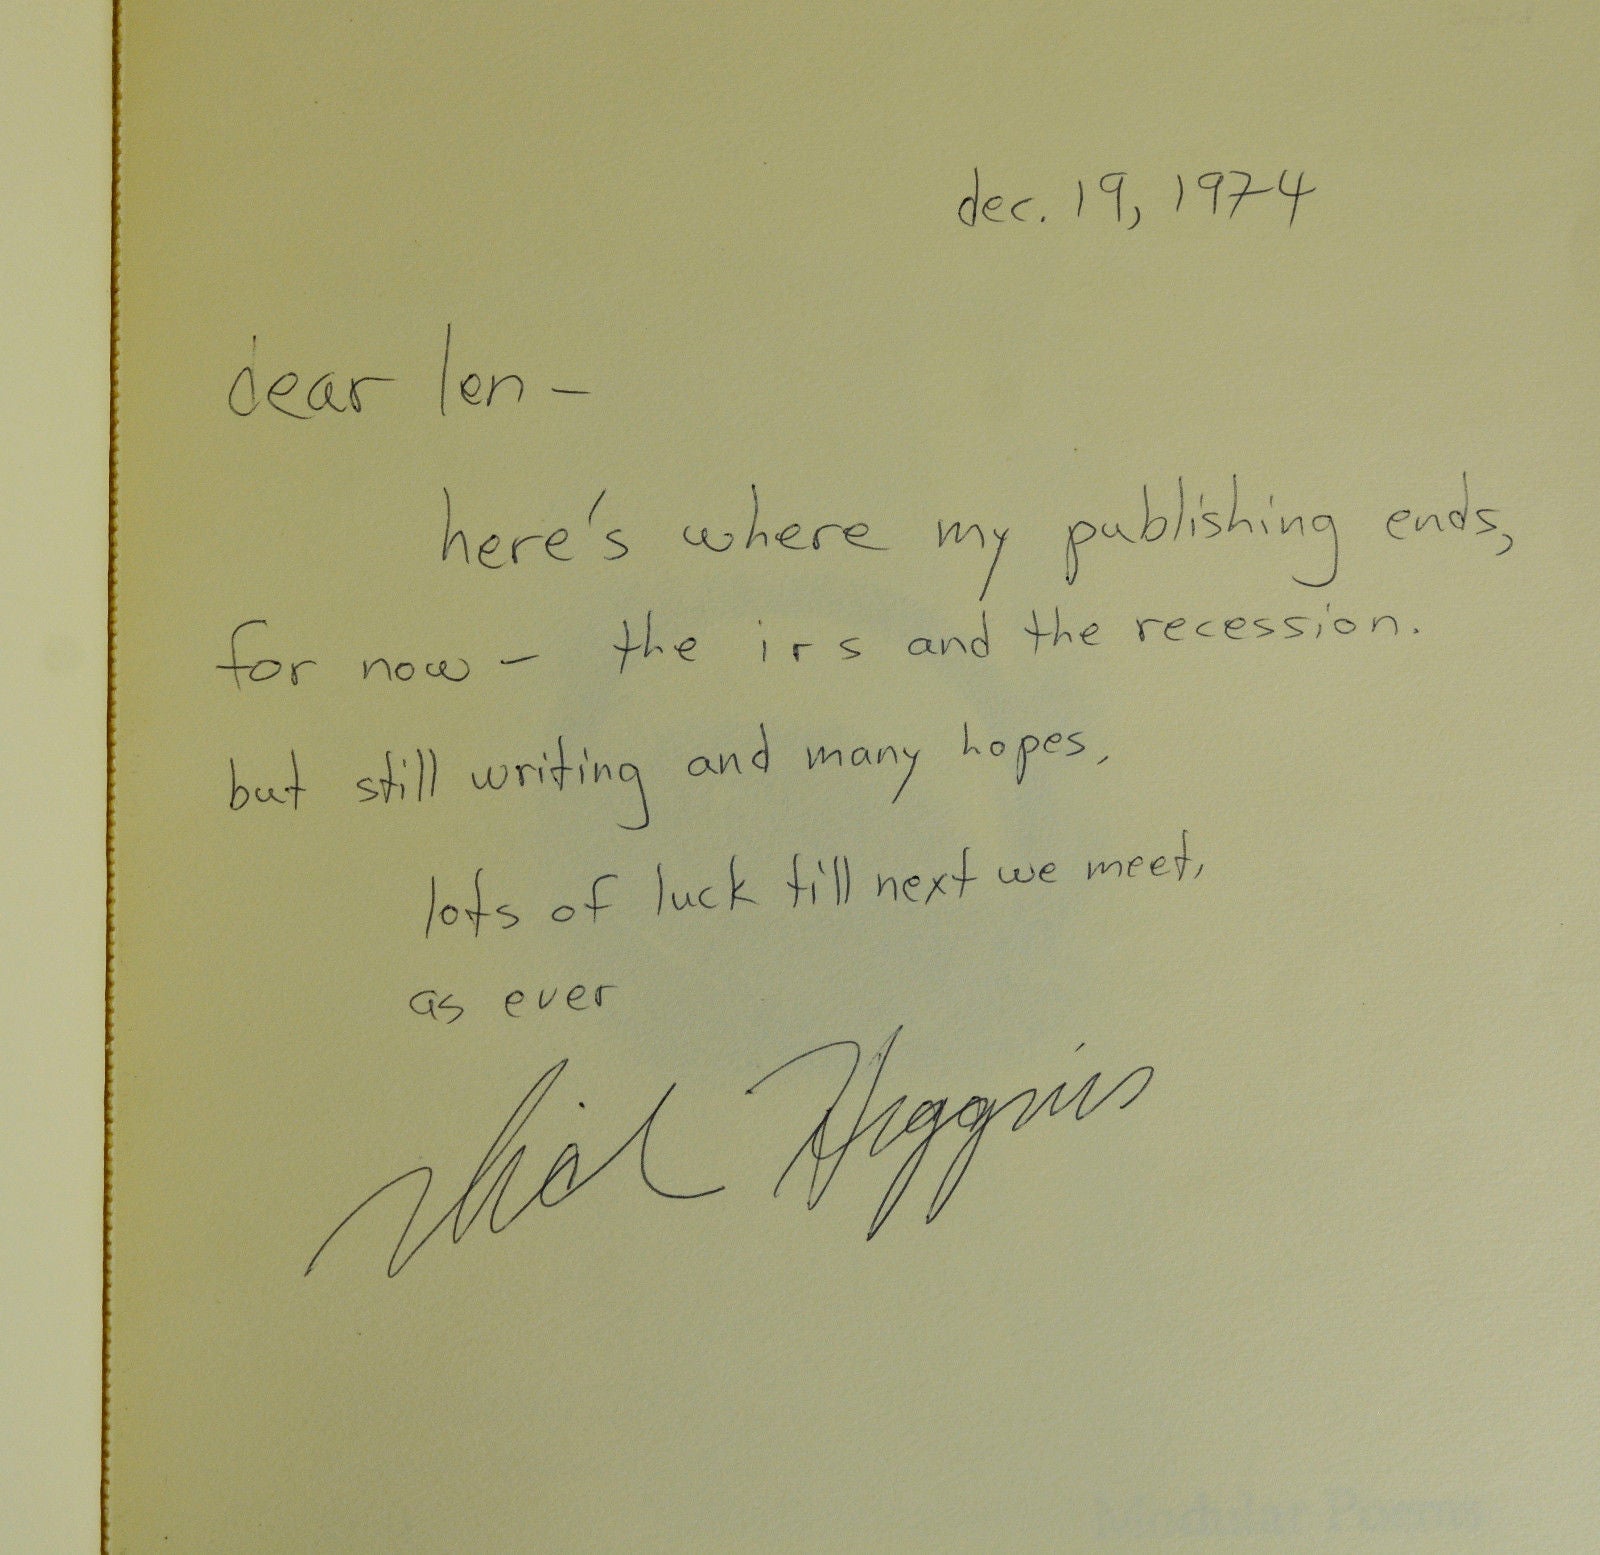 dec. 19, 1974
dear len –
here's where my publishing ends,
for now – the irs and the recession.
but still writing and many hopes.
lots of luck till next we meet,
as ever
Dick Higgins
Modular Poems